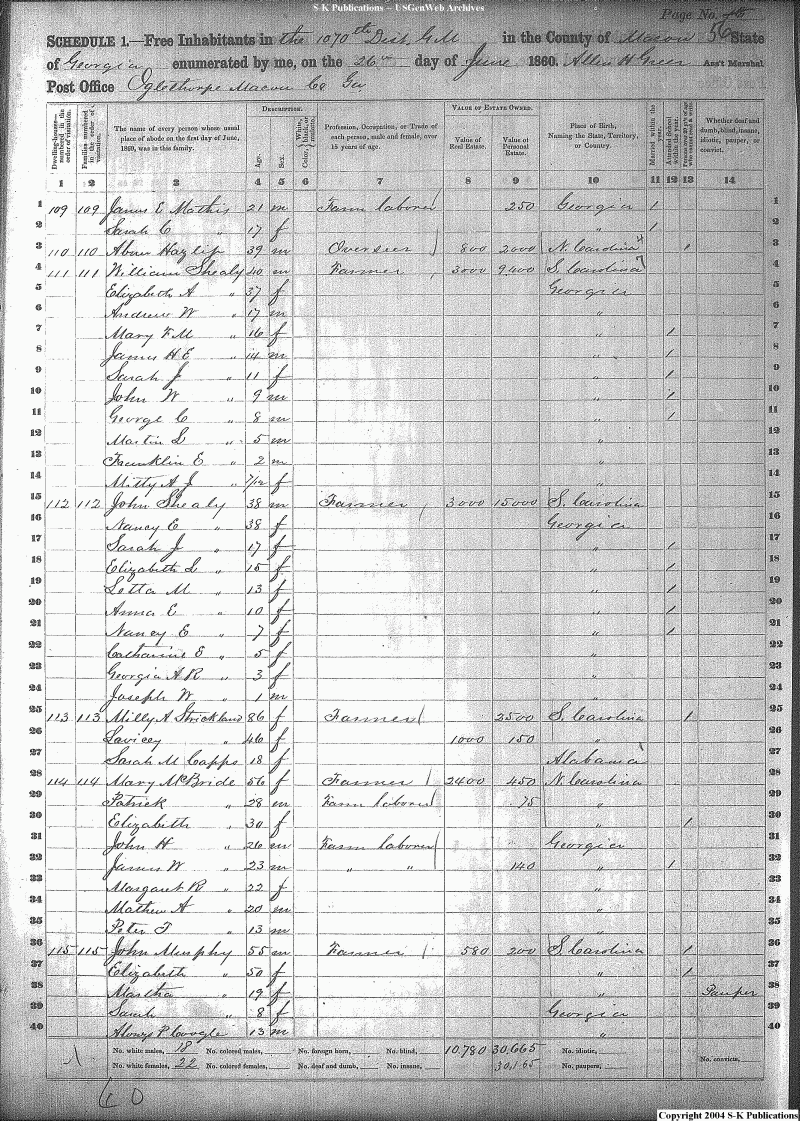 S-K Publications – USGenWeb Archives
Page No.
SCHEDULE 1.—Free Inhabitants in the 1070th Dist G.M in the County of Macon 56 State
of Georgia enumerated by me, on the 26th day of June 1860. Allen H Greer Ass't Marshal
Post Office Oglethorpe Macon Co Ga
Dwelling-houses—numbered in the order of visitation. Families numbered in the order of visitation. The name of every person whose usual place of abode on the first day of June, 1860, was in this family. DESCRIPTION. Age. Sex. Color, White, black, or mulatto. Profession, Occupation, or Trade of each person, male and female, over 15 years of age. VALUE OF ESTATE OWNED. Value of Real Estate. Value of Personal Estate. Place of Birth, Naming the State, Territory, or Country. Married within the year. Attended School within the year. Whether deaf and dumb, blind, insane, idiotic, pauper, or convict.
1 2 3 4 5 6 7 8 9 10 11 12 13 14
1 109 109 James E Mathis 21 m Farm laborer 250 Georgia 1 1
2 Sarah C " 17 f " 1 2
3 110 110 Abner Hazlip 39 m Overseer 800 2000 N. Carolina 1 3
4 111 111 William Shealy 40 m Farmer 3000 9.400 S. Carolina 4
5 Elizabeth A " 37 f Georgia 5
6 Andrew W " 17 m " 6
7 Mary F M " 16 f " 1 7
8 James H E " 14 m " 1 8
9 Sarah J " 11 f " 1 9
10 John W " 9 m " 1 10
11 George C " 8 m " 1 11
12 Martin L " 5 m " 12
13 Franklin E " 2 m " 13
14 Mitty A J " 7/12 f " 14
15 112 112 John Shealy 38 m Farmer 3000 15000 S. Carolina 15
16 Nancy E " 38 f Georgia 16
17 Sarah J " 17 f " 1 17
18 Elizabeth L " 15 f " 1 18
19 Letta M " 13 f " 1 19
20 Anna E " 10 f " 1 20
21 Nancy E " 7 f " 1 21
22 Catharine E " 5 f " 22
23 Georgia A R " 3 f " 23
24 Joseph W " 1 m " 24
25 113 113 Milly A Strickland 86 f Farmer 2500 S. Carolina 1 25
26 Lavicey " 46 f 1000 150 " 26
27 Sarah M Capps 18 f Alabama 27
28 114 114 Mary McBride 56 f Farmer 2400 450 N. Carolina 28
29 Patrick " 28 m Farm laborer 75 " 29
30 Elizabeth " 30 f " 1 30
31 John H " 26 m Farm laborer Georgia 31
32 James W " 23 m " " 140 " 1 32
33 Margaret R " 22 f " 33
34 Mathew A " 20 m " 34
35 Peter F " 13 m " 35
36 115 115 John Murphy 55 m Farmer 580 200 S. Carolina 1 36
37 Elizabeth " 50 f " 1 37
38 Martha " 19 f " Pauper 38
39 Sarah " 8 f Georgia 39
40 P Coogle 13 m " 40
No. white males, 18 No. colored males, No. foreign born, No. blind, 10.780 30,665 No. idiotic,
No. white females, 22 No. colored females, No. deaf and dumb, No. insane, 30,165 No. paupers, No. convicts,
Copyright 2004 S-K Publications